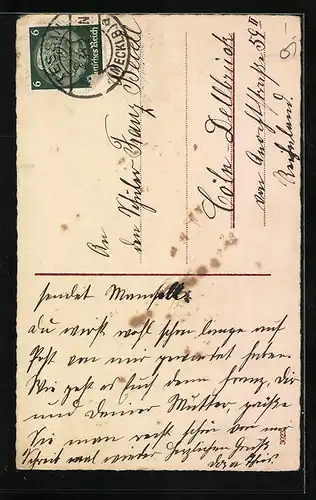 6 Deutsches Reich 6
TESSIN
(MECKLB) a
An
den Schüler Franz
Cöln Dellbrück
von 59 II
Rheinland
sendet
Du wirst wohl schon lange auf
Post von mir gewartet haben.
Wie geht es Euch denn Franz, Dir
und Deiner Mutter, grüße
Sie man recht schön von mir
Schreib mal wieder herzlichen Gruß